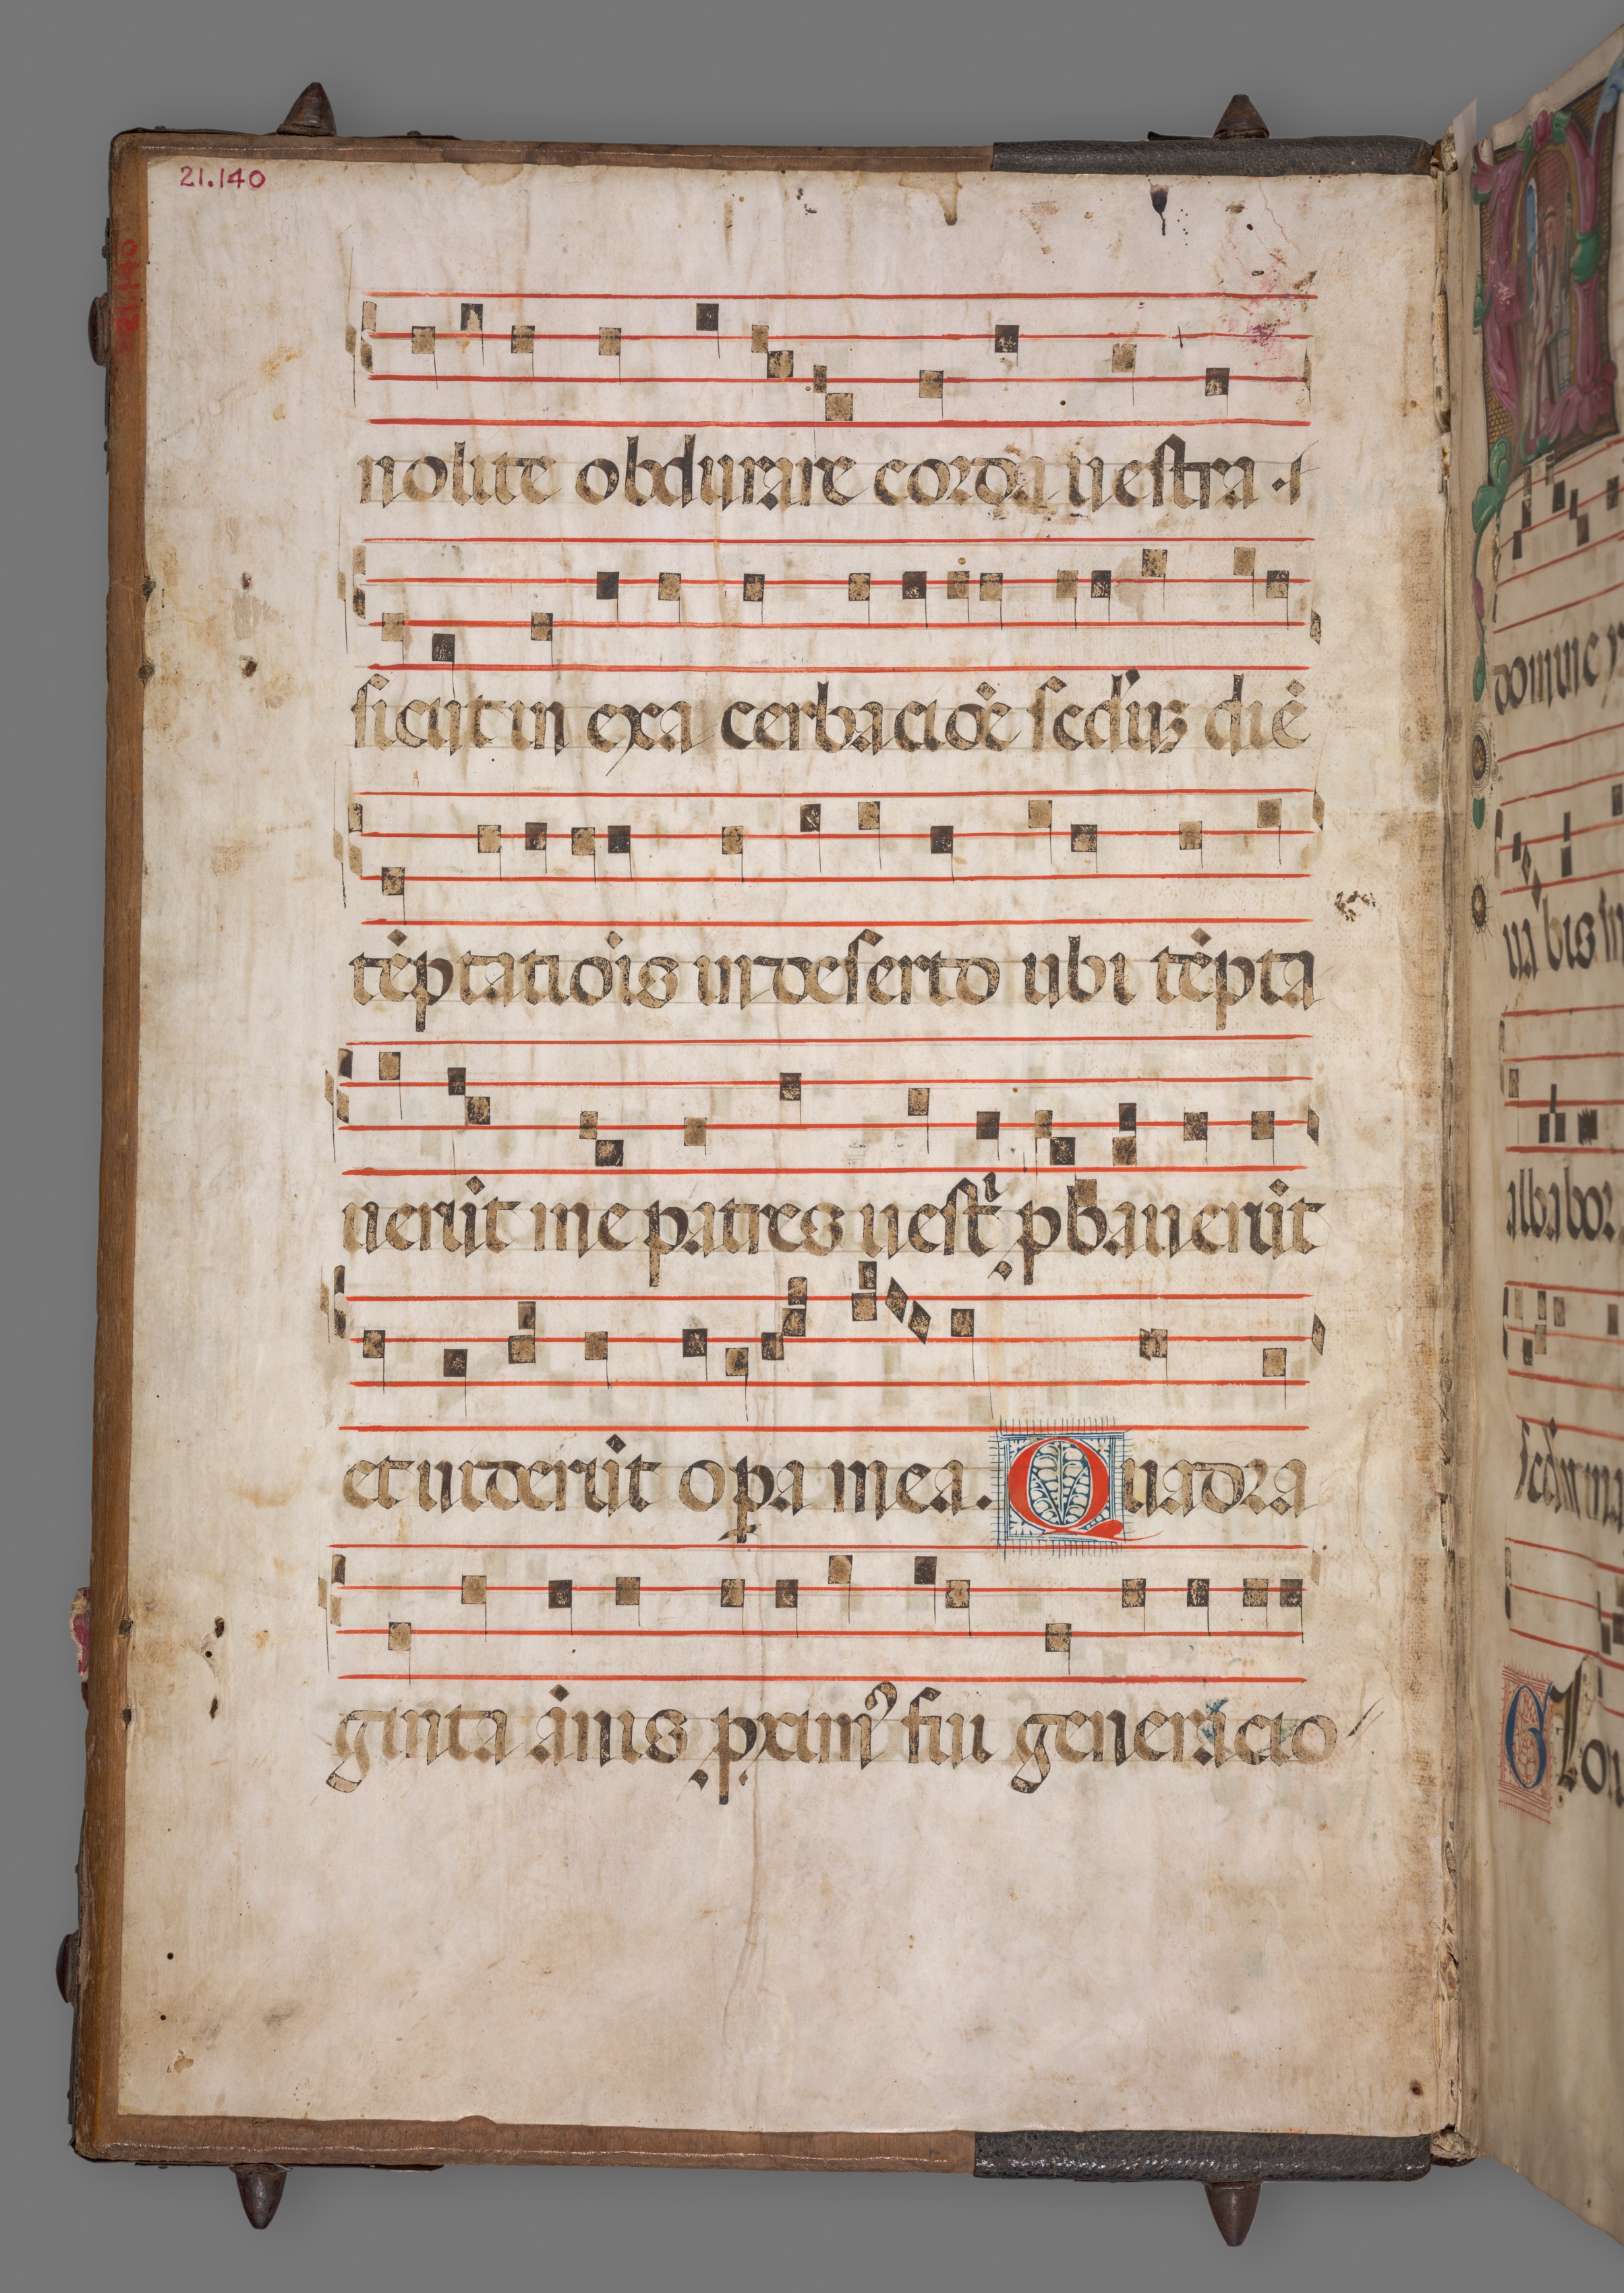 21.140
21.140
nolite obdurare corda uestra
sicut in exa cerbacioē scd'uz diē
tēptatiōis in deserto ubi tēpta
uerūt me patres uestr̄ ꝓbauerūt
et uiderūt oꝑa mea. Quadra
ginta ānis ꝓximꝰ fui generacio
domine
ua bis
alba bor
scdm
Glon